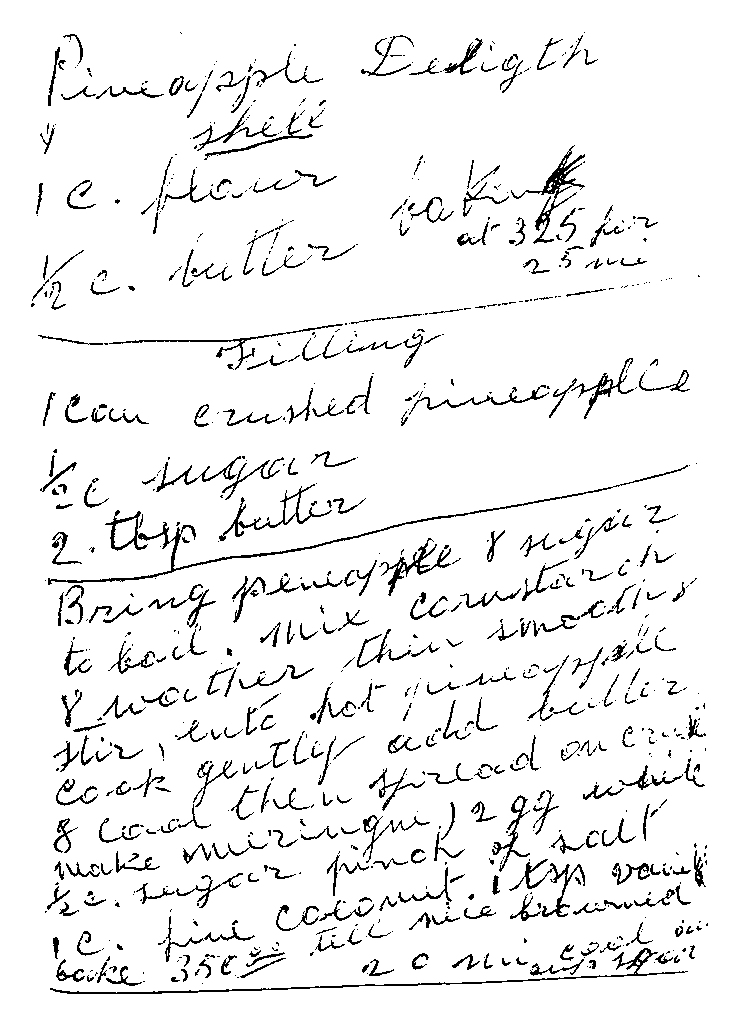 Pineapple Deligth
shell
1 c. flour
½ c. butter bake
at 325 for
25 mi
Filling
1 can crushed pineapple
½ c sugar
2. tbsp butter
Bring pineapple & sugar
to boil. Mix cornstarch
& wather thin smooth &
stir, into hot pineapple
cook gently add butter
& cool then spread on crust
make meringue, 2 gg white
½ c. sugar pinch of salt
1 c. fine coconut. 1 tsp vanil
bake 350 till nice browned
20 mi cool in